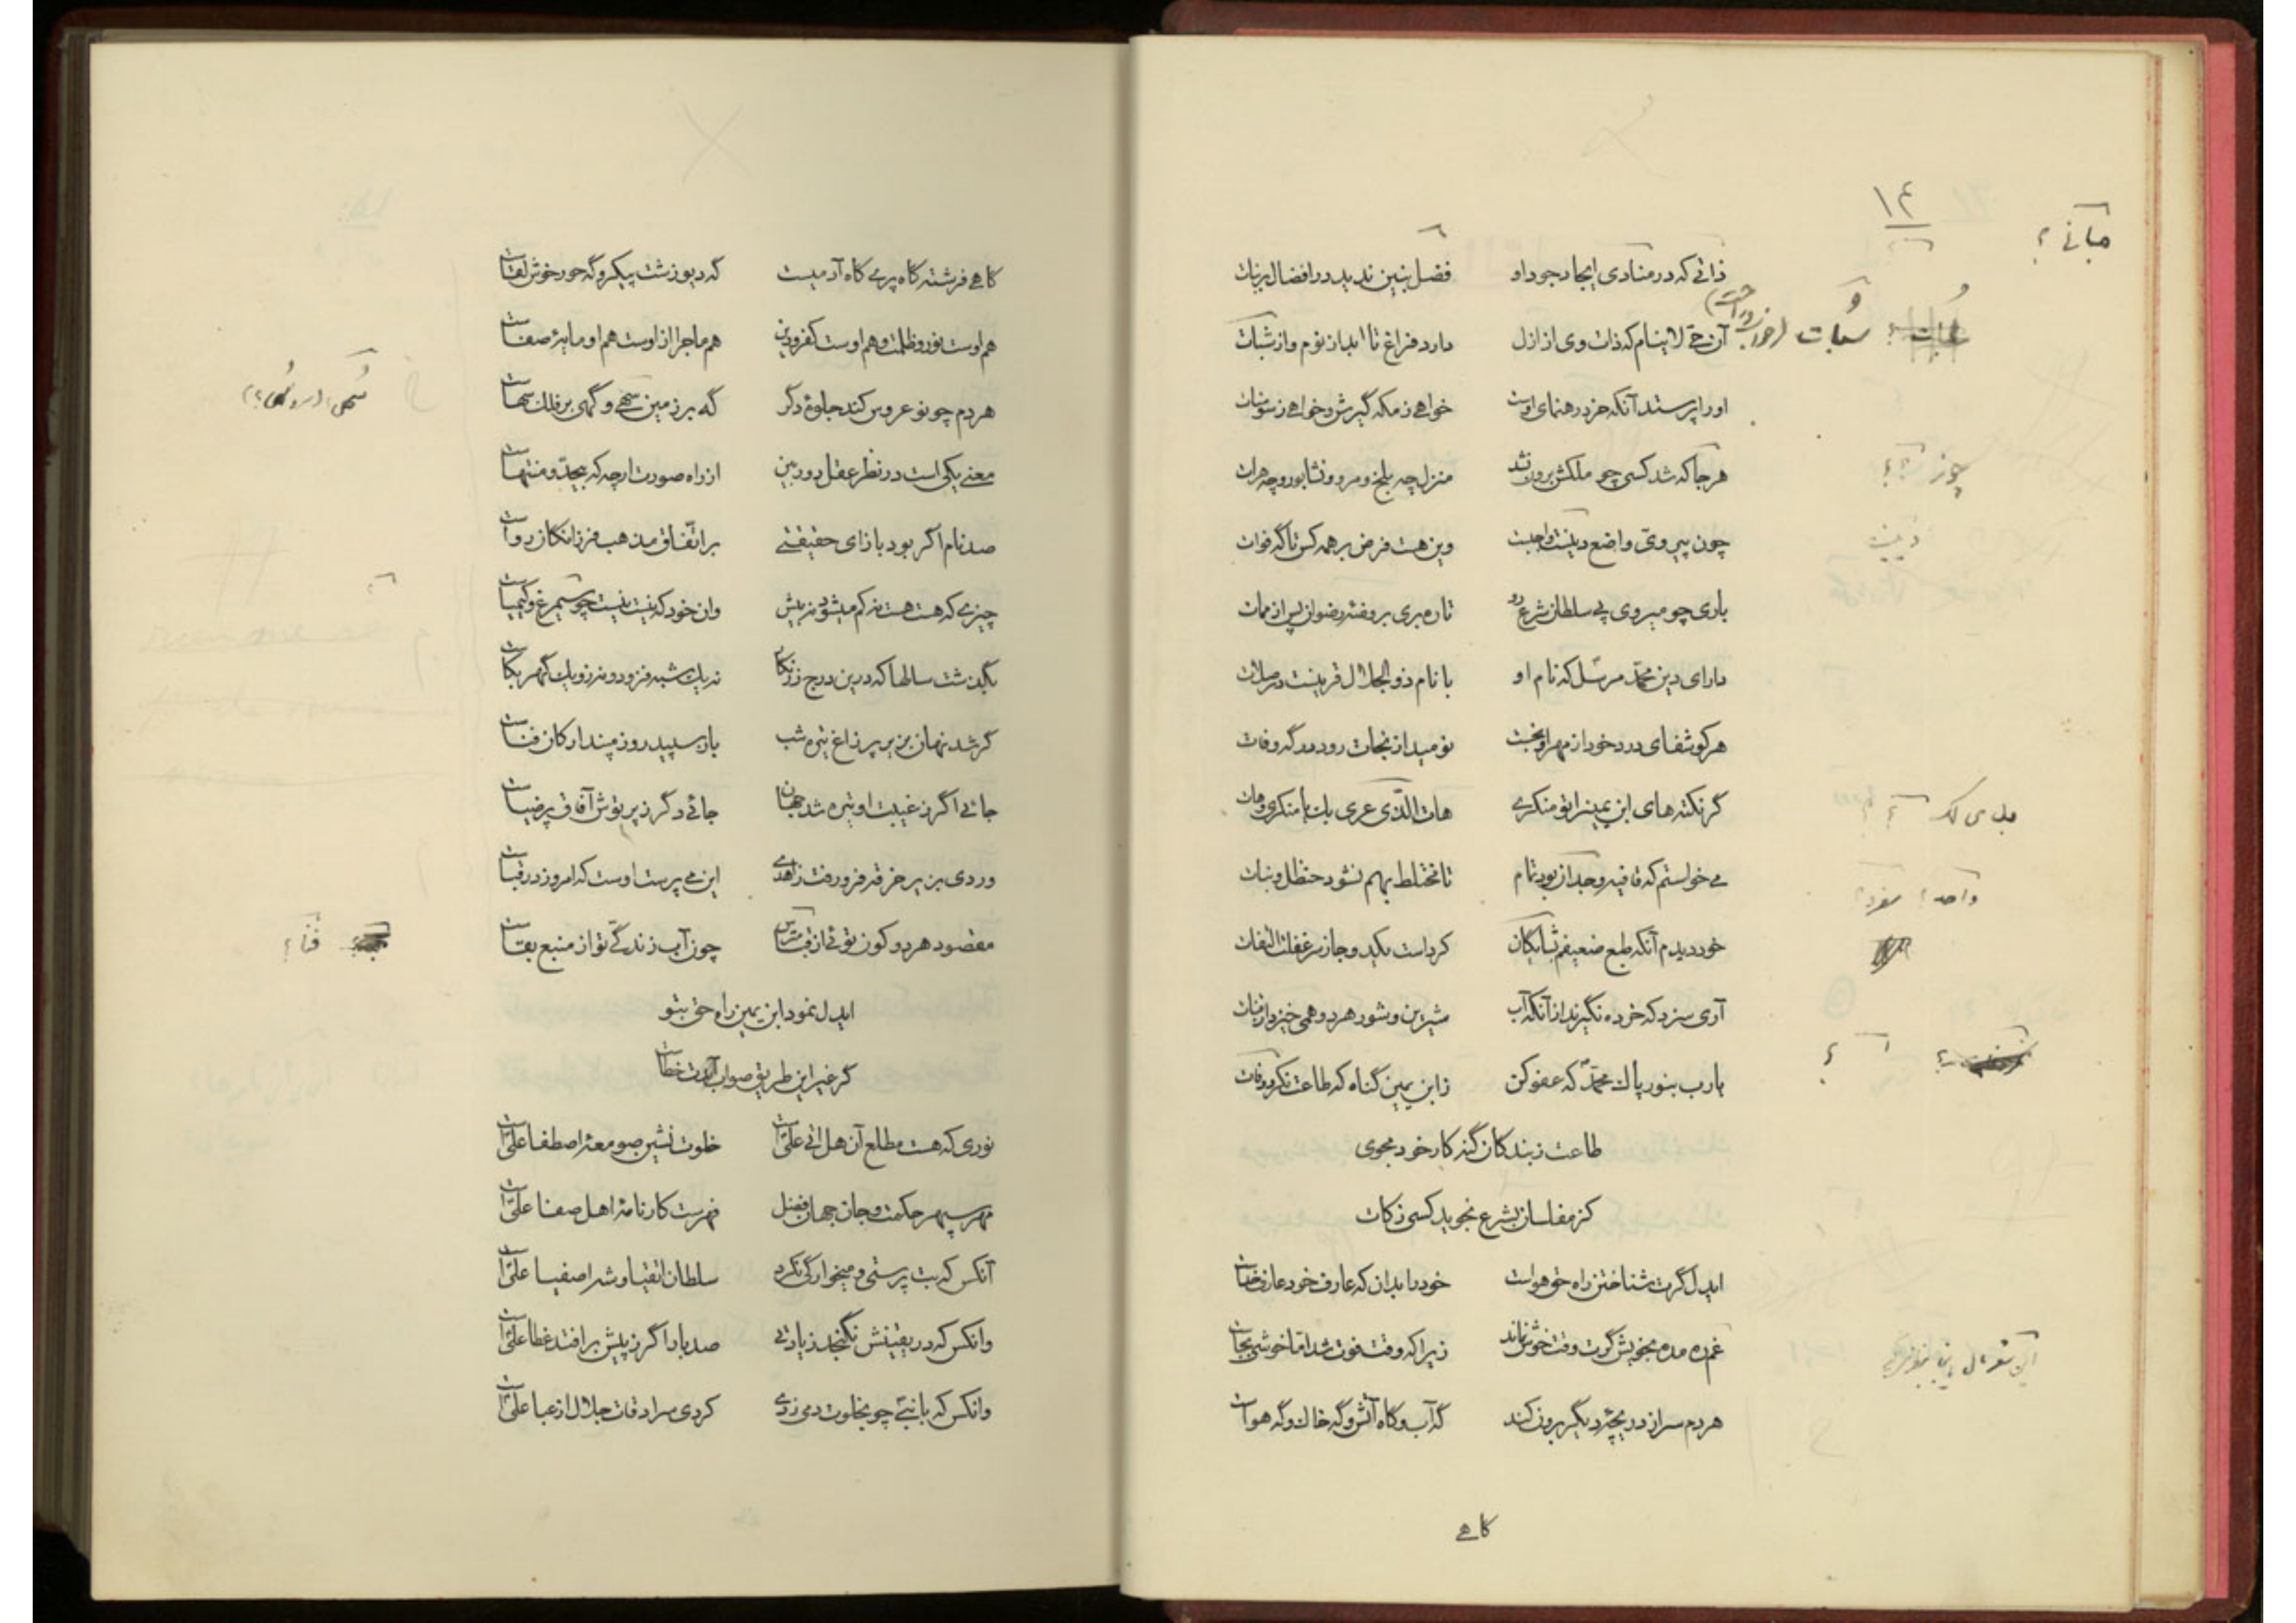 ۱۴
ذاتی که در منادی ایجاد جود او فضل بنین ندید در افضال بر بنات
آن حی لاینام که ذات وی از ازل دارد فراغ تا ابد از نوم و از سبات
او را پرستد آنکه خرد رهنمای اوست خواهی ز مکه گیرش و خواهی ز سومنات
هر جا که شد کسی چو ز ملکش برون نشد منزل چه بلخ و مرو و نشابور و چه هرات
چون پیروی واضع دینت واجبست وین هست فرض بر همه کس تا گه فوات
باری چو میروی پی سلطان شرع رو تا ره بری بروضه رضوان پس از ممات
دارای دین محمد مرسل که نام او با نام ذوالجلال قرینست در صلات
هر کو شفای درد خود از مهر او نجست نومید از نجات رود در گه وفات
گر نکته های ابن یمین را تو منکری هات الذی عری بک یا منکری وهات
می خواستم که قافیه وحدان بود تمام تا مختلط بهم نشود حنظل و نبات
خود دیدم آنکه طبع ضعیفم بشایگان کرداست یکدو جا ز سر غفلت التفات
آری سزد که خرده نگیرند از آنکه آب شیرین و شور هر دو همی خیزد از فرات
یارب بنور پاک محمد که عفو کن ز ابن یمین گناه که طاعت نکرد وفات
طاعت ز بندگان گنه کار خود مجوی
کز مفلسان بشرع نجوید کسی زکات
ایدل گرت شناختن راه حق هواست خود را بدان که عارف خود عارف خداست
غم ره مده بخویش گرت وقت خوش نماند زیرا که وقت فوت شد اما خوشی بجاست
هر دم سر از دریچه دیگر برون کند گه آب و گاه آتش و گه خاک و گه هواست
گاهی
گاهی فرشته گاه پری گاه آدمیست گه دیو زشت پیکر و گه حور خوش لقاست
هم اوست نور و ظلمت و هم اوست کفر و دین هم ماجرا از اوست هم او مایه صفاست
هر دم چو نو عروس کند جلوه دگر گه بر زمین سهی و گهی بر فلک سهاست
معنی یکی است در نظر عقل دوربین از راه صورت ارچه که بیحد و منتهاست
صد نام اگر بود بازای حقیقتی بر اتفاق مذهب فرزانگان رواست
چیزی که هست هست نه کم میشود نه بیش وان خود که نیست نیست چو سیمرغ و کیمیاست
بگذشت سالها که درین درج زرنگار نه یک شبه فزود و نه زو یک گهر بکاست
گر شد نهان بزیر پر زاغ تیره شب باز سپید روز مپندار کان فناست
جائی اگر ز غیبت او تیره شد جهان جائی دگر ز پرتوش آفاق پر ضیاست
ور دی بزیر خرقه فرو رفت زاهدی این می پرست اوست که امروز در قباست
مقصود هر دو کون توئی از فنا مترس چون آب زندگی تو از منبع بقاست
ایدل نمود ابن یمین راه حق بتو
گر غیر این طریق صواب آیدت خطاست
نوری که هست مطلع آن هل اتی علیست خلوت نشین صومعه اصطفا علیست
مهر سپهر حکمت و جان جهان فضل فهرست کارنامه اهل صفا علیست
آنکس که بت پرستی و میخوارگی نکرد سلطان اتقیا و شه اصفیا علیست
وانکس که در یقینش نگنجد زیادتی صد بار اگر ز پیش بر افتد غطا علیست
وانکس که با نبی چو بخلوت دمی زدی کردی سرادقات جلال از عبا علیست
فنا؟